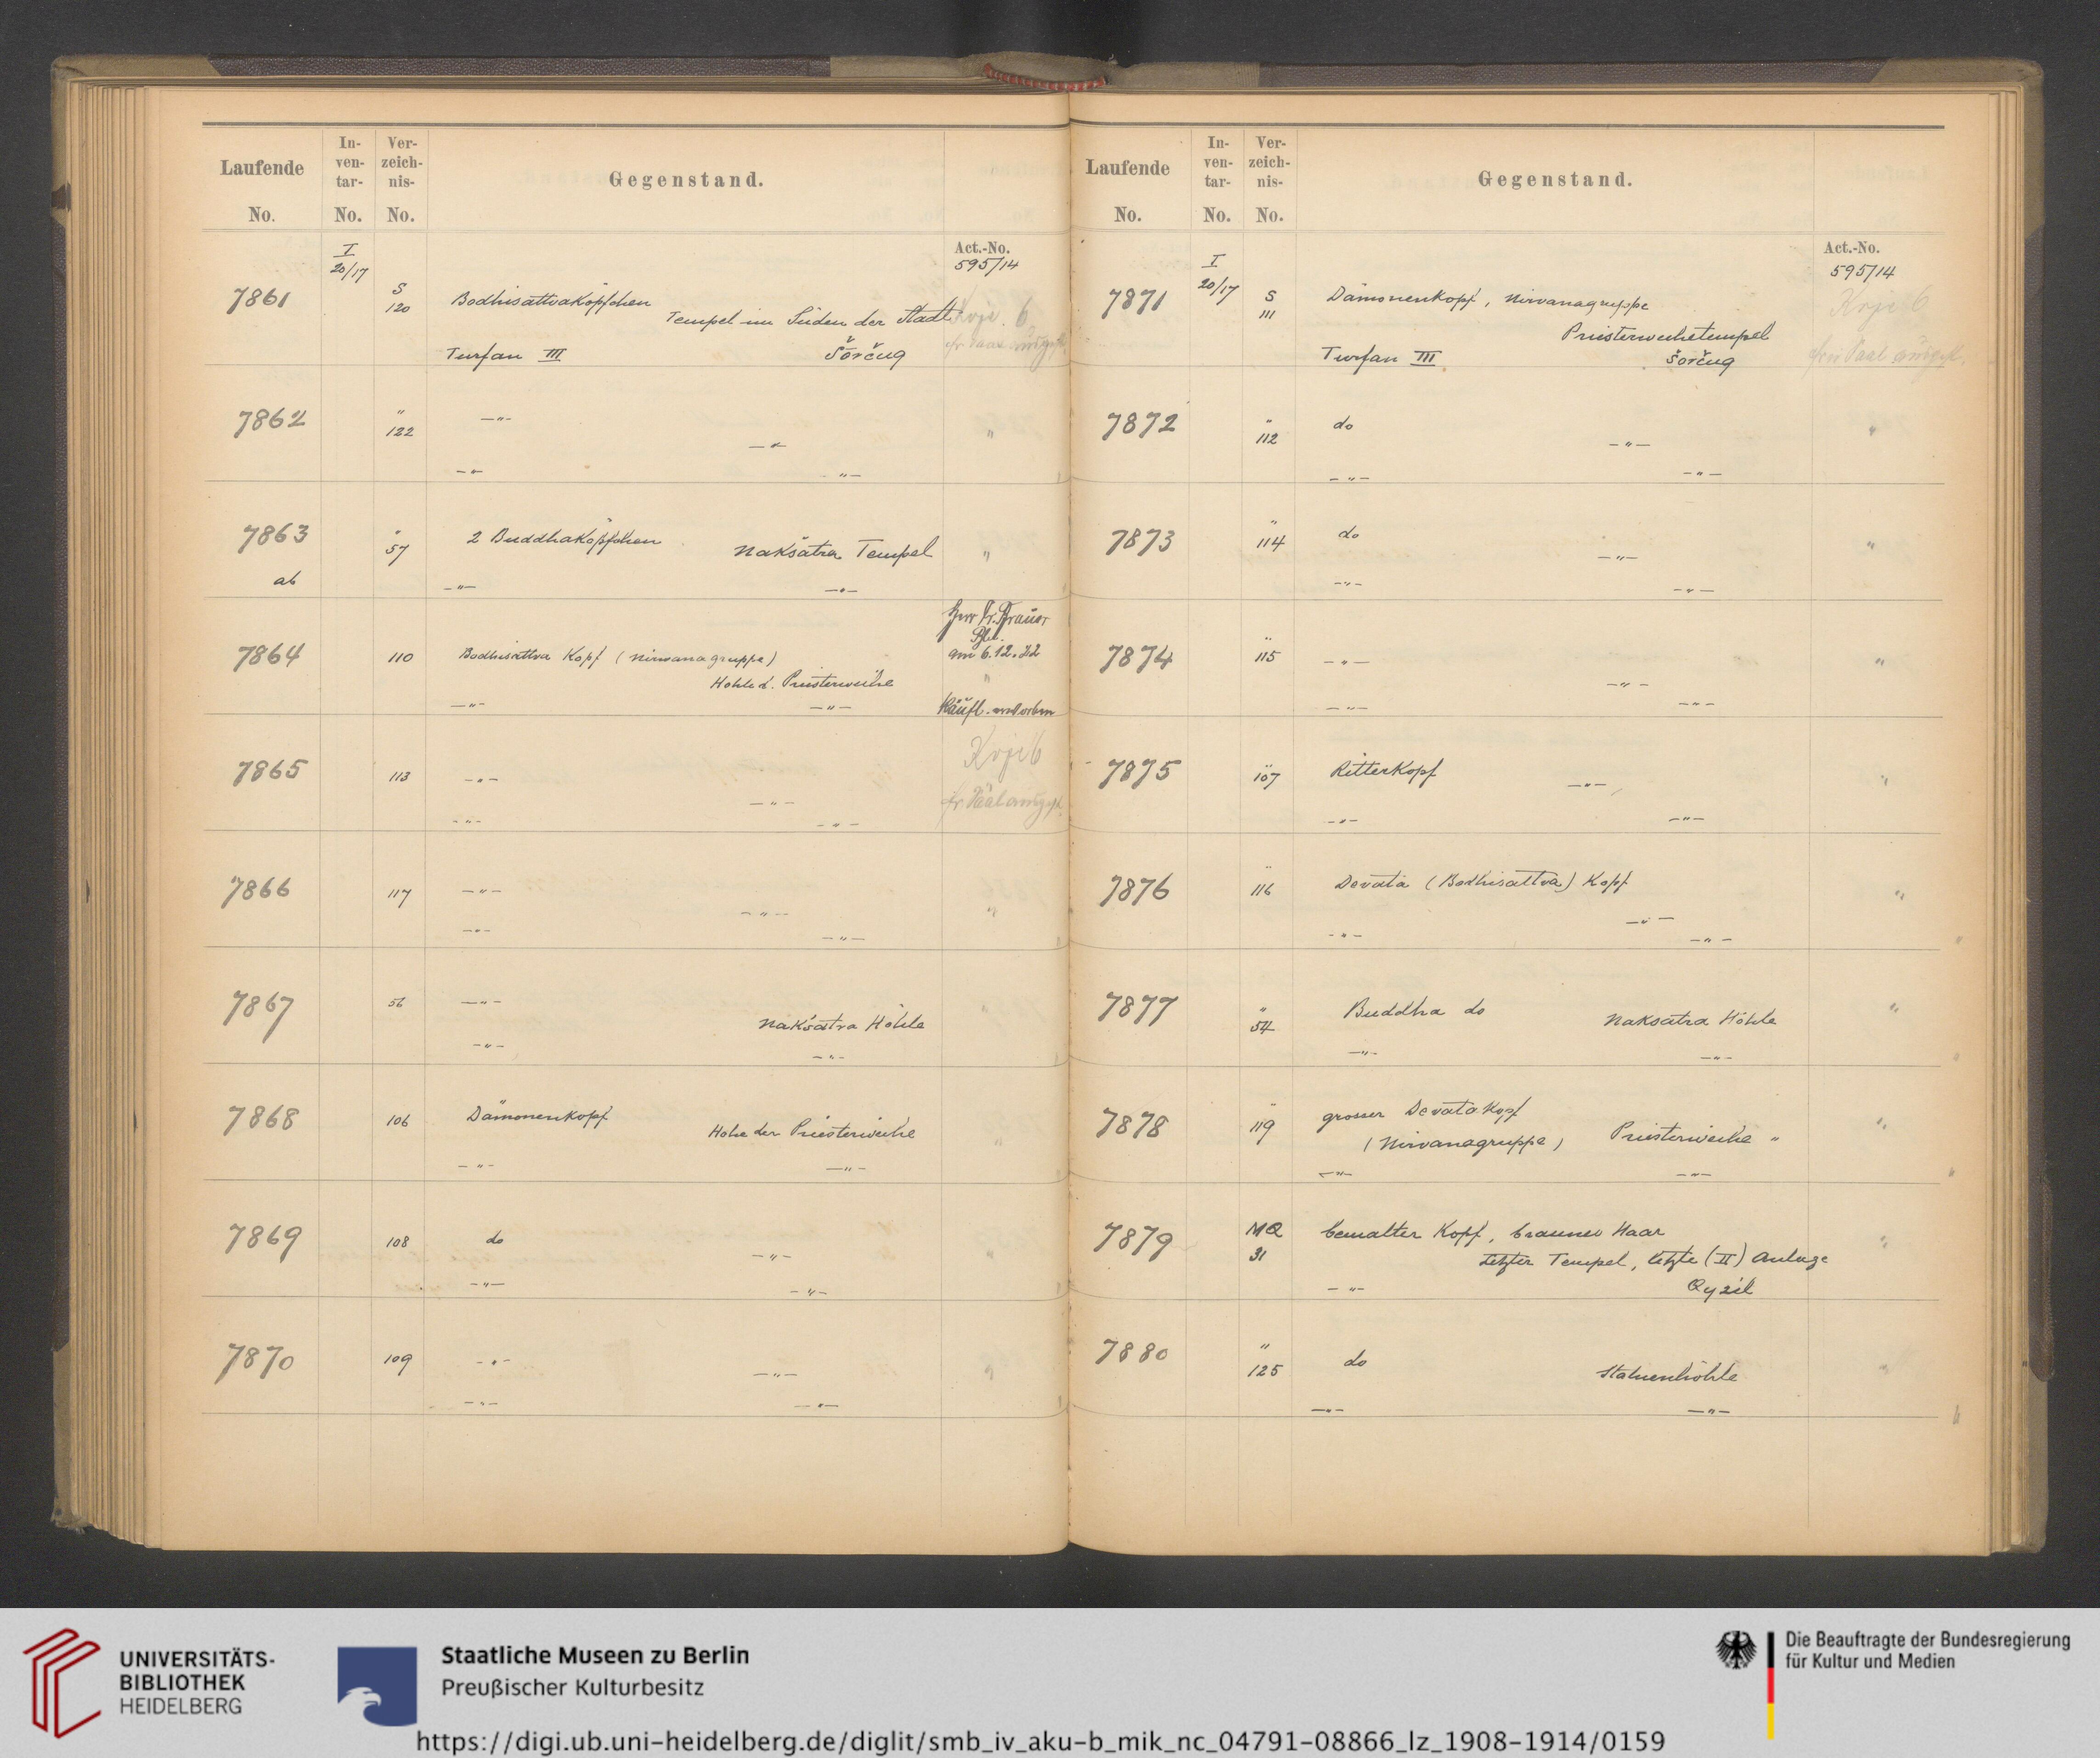 Laufende No.
In-ven-tar- No.
Ver-zeich-nis- No.
Gegenstand.
I 20/17
Act.-No. 595/14
7861 S 120 Bodhisattvaköpfchen
Tempel im Süden der Stadt
Turfan III Šorčug
7862 " 122 —"—
—"—
—"— "—
"
7863 ab " 57 2 Buddhaköpfchen Naksatra Tempel "
—"— —"—
Herr
am 6.12.22
7864 110 Bodhisattva Kopf (Nirvanagruppe)
Höhle d. Priesterweihe "
—"— —"— Käufl. erworben
Krje 6
7865 113 —"—
—"—
—"— —"—
7866 117 —"—
—"— "
—"— —"—
7867 56 —"—
Naksatra Höhle
—"— —"—
7868 106 Dämonenkopf
Höhle der Priesterweihe "
—"— —"—
7869 108 do
—"— "
—"— —"—
7870 109 —"—
—"— "
—"— —"—
Laufende No.
In-ven-tar- No.
Ver-zeich-nis- No.
Gegenstand.
I 20/17
Act.-No. 595/14
7871 S 111 Dämonenkopf, Nirvanagruppe
Krje 6
Priesterweihetempel
Turfan III Šorčug
7872 " 112 do
—"— "
—"— —"—
7873 " 114 do
—"— "
—"— —"—
7874 " 115 —"—
—"— "
—"— —"—
7875 " 107 Ritterkopf —"— "
—"— —"—
7876 " 116 Devata (Bodhisattva) Kopf "
—"—
—"— —"—
7877 " 54 Buddha do Naksatra Höhle "
—"— —"—
7878 " 119 grosser Devatakopf
(Nirvanagruppe) Priesterweihe " "
—"— —"—
7879 MQ 31 bemalter Kopf, braunes Haar "
Letzter Tempel, letzte (II) Anlage
—"— Qyzil
7880 " 125 do Statuenhöhle "
—"— —"—
UNIVERSITÄTS-
BIBLIOTHEK
HEIDELBERG
Staatliche Museen zu Berlin
Preußischer Kulturbesitz
Die Beauftragte der Bundesregierung
für Kultur und Medien
https://digi.ub.uni-heidelberg.de/diglit/smb_iv_aku-b_mik_nc_04791-08866_lz_1908-1914/0159